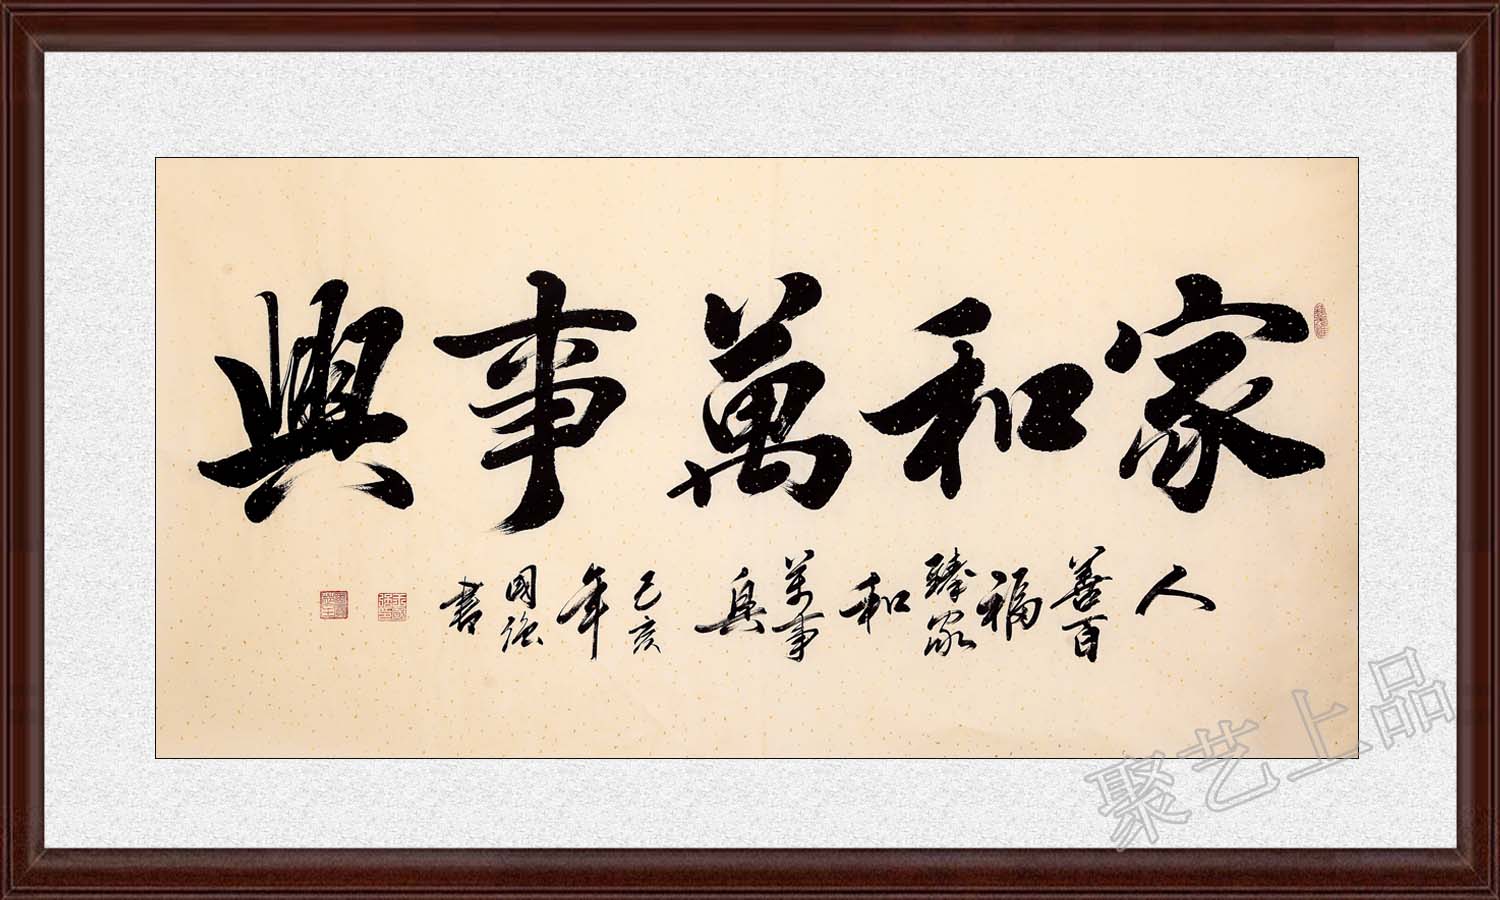 家和萬事興
人善百福臻家和萬事興己亥年國強書
聚艺上品